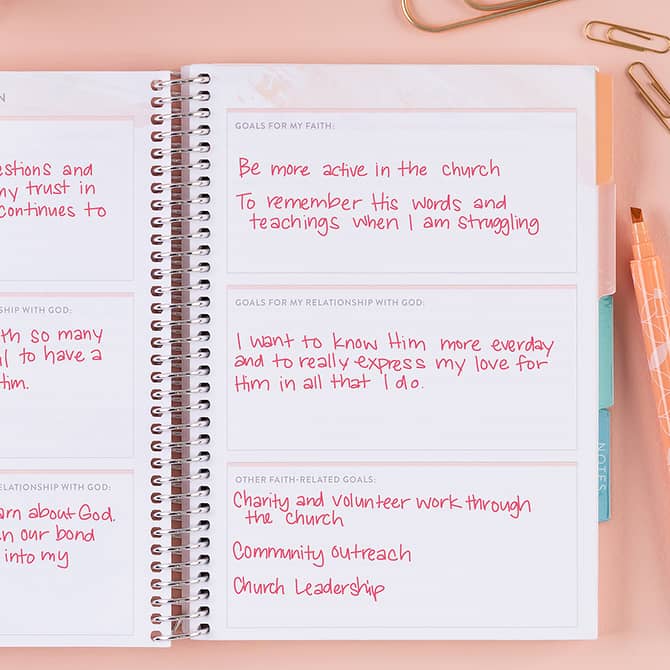 N
estions and
ny trust in
continues to
SHIP WITH GOD:
th so many
al to have a
Him.
ELATIONSHIP WITH GOD:
arn about God.
en our bond
into my
GOALS FOR MY FAITH:
Be more active in the church
To remember His words and
teachings when I am struggling
GOALS FOR MY RELATIONSHIP WITH GOD:
I want to know Him more everday
and to really express my love for
Him in all that I do.
OTHER FAITH-RELATED GOALS:
Charity and volunteer work through
the church
Community outreach
Church Leadership
NOTES